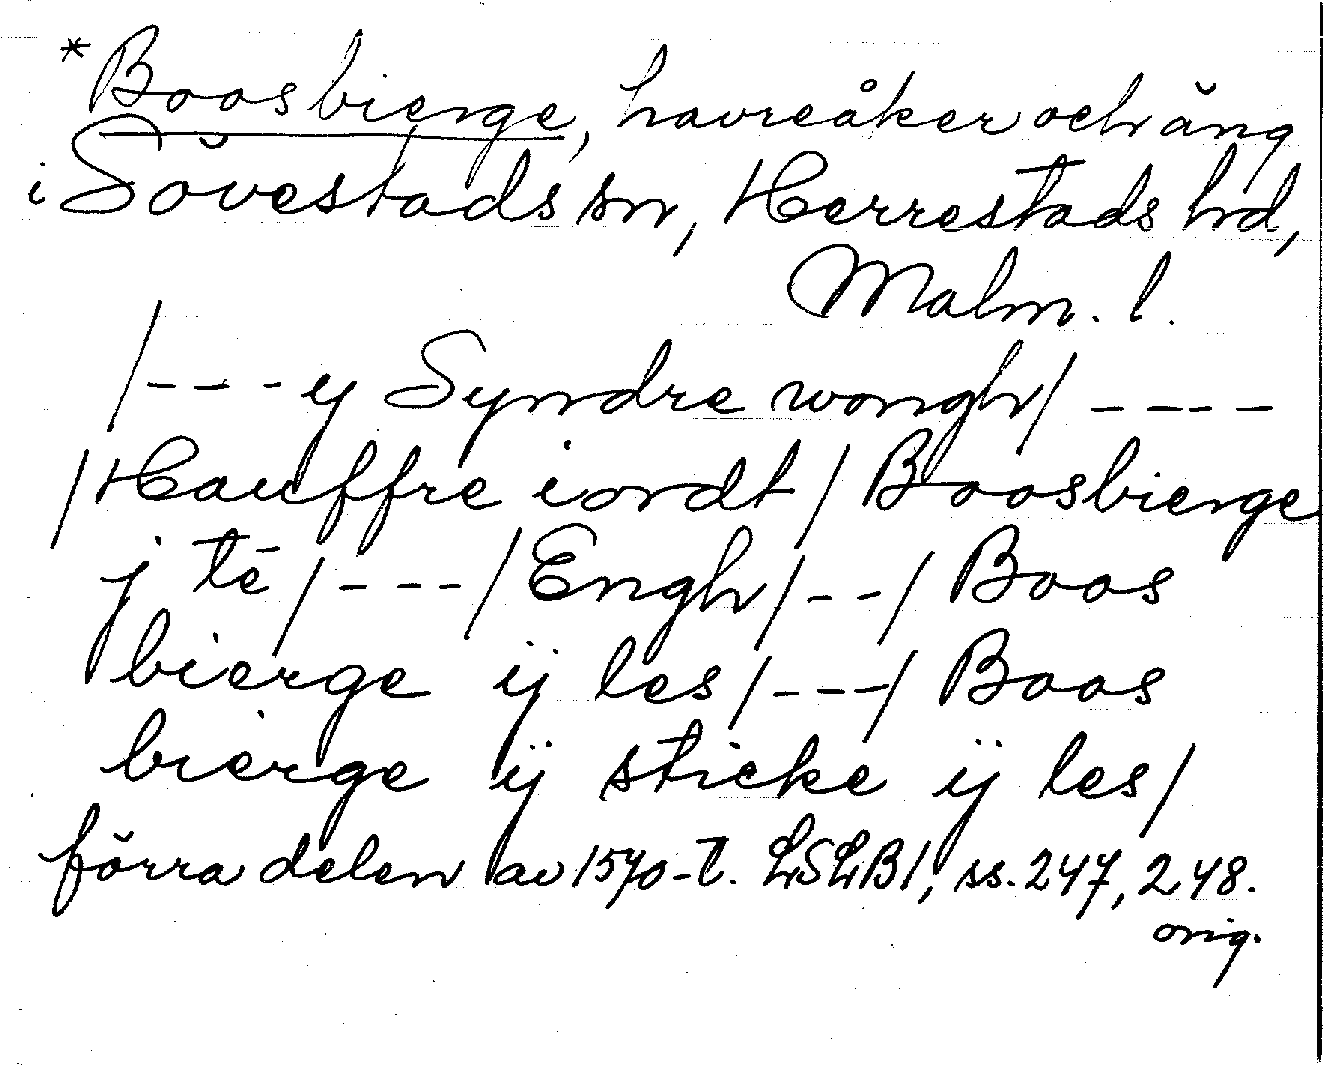 *Boosbierge, havreåker och äng
i Sövestads sn, Herrestads hd,
Malm. l.
/--- y Syndre wongh/ ----
/Hauffre iordt/ Boosbierge
j tē /---/ Engh/--/ Boos
bierge ij les/---/ Boos
bierge ij sticke ij les/
förra delen av 1570-t. LSLB1, ss. 247, 248.
orig.